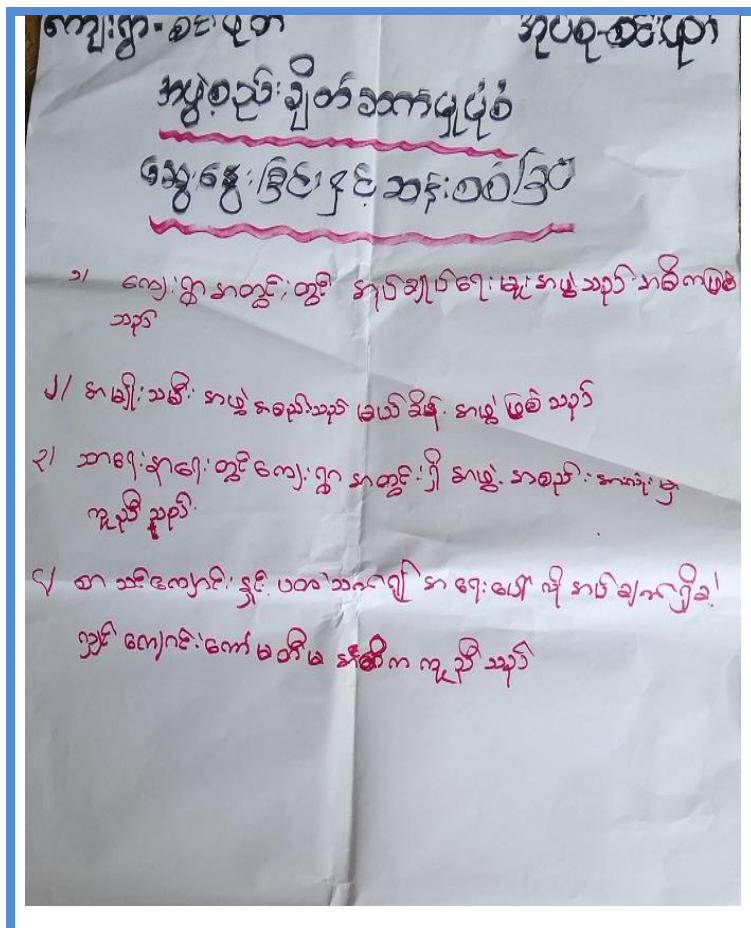 ကျေးရွာ-စင်းပုတ် အုပ်စု-စင်းပုတ်
အဖွဲ့စည်းချိတ်ဆက်မှုပုံစံ
ဆွေးနွေးခြင်းနှင့်ဆန်းစစ်ခြင်း
၁/ ကျေးရွာအတွင်းတွင် အုပ်ချုပ်ရေးမှူးအဖွဲ့သည် အဓိကဖြစ်
သည်
၂/ အမျိုးသမီး အဖွဲ့အစည်းသည် အဖွဲ့ဖြစ်သည်
၃/ သာရေးနာရေးတွင်ကျေးရွာအတွင်းရှိ အဖွဲ့အစည်းအားလုံးမှ
ကူညီသည်
၄/ စာသင်ကျောင်းနှင့်ပတ်သက်၍ အရေးပေါ်လိုအပ်ချက်ရှိခဲ့
လျှင် ကျောင်းကော်မတီမှ ကူညီသည်